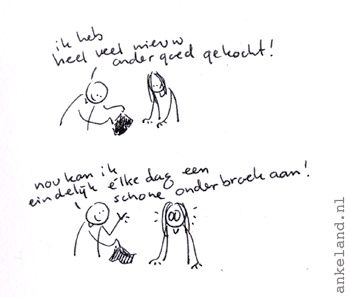 ik heb
heel veel nieuw
ondergoed gekocht!
nou kan ik
eindelijk élke dag een
schone onderbroek aan!
@
ankeland.nl